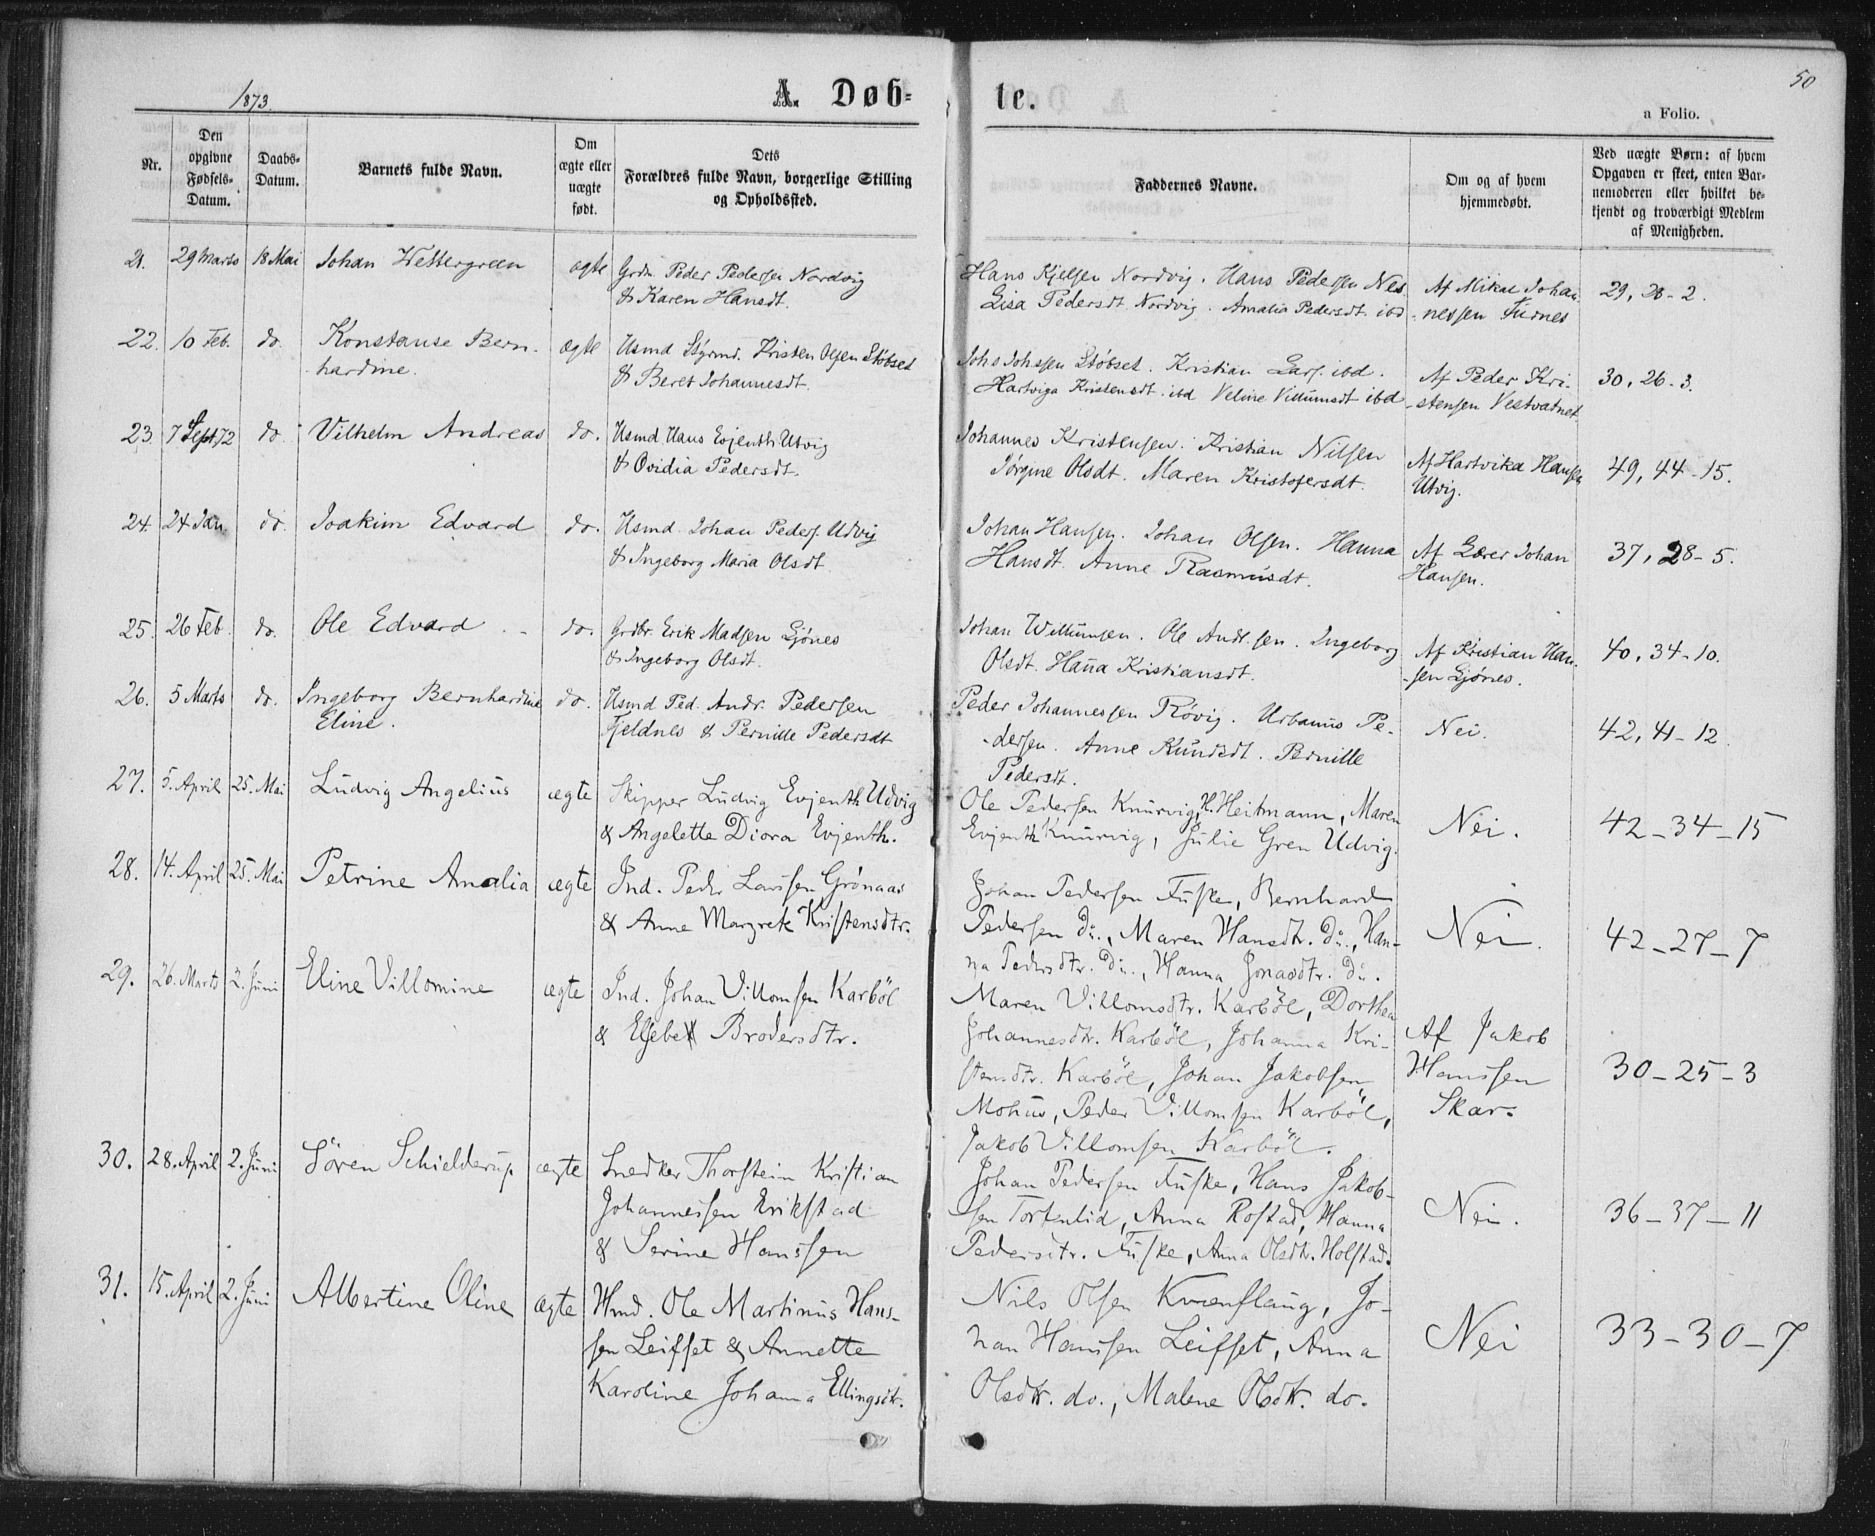 1873.
A. Døb-
te.
50
a Folio.
Nr.
Den opgivne Fødsels-Datum.
Daabs-Datum.
Barnets fulde Navn.
Om ægte eller uægte født.
Dets Forældres fulde Navn, borgerlige Stilling og Opholdssted.
Faddernes Navne.
Om og af hvem hjemmedøbt.
Ved uægte Børn: af hvem Opgaven er skeet, enten Barnemoderen eller hvilket bekjendt og troværdigt Medlem af Menigheden.
21. 29 Marts 18 Mai Johan Wettergreen ægte Grdbr. Peder Pedersen Nordvig
& Karen Hansdt.
Hans Kjelsen Nordvig. Hans Pedersen Nes
Lisa Pedersdt Nordvig. Amalia Pedersdt ibd
Af Mikal Johan-
nessen Furnes
29, 28-2.
22. 10 Feb. do. Konstanse Bern-
hardine.
ægte Husmd Styrmd. Kristen Olsen Støbset
& Beret Johannesdt.
Johs Johnsen Støbset. Kristian Lars. ibd.
Hartviga Kristensdt. ibd Veline Villumsdt ibd
Af Peder Kri-
stensen Vestvatnet
30, 26-3.
23. 7 Sept 72 do. Vilhelm Andreas do. Husmd Hans Evjenth Utvig
& Ovidia Pedersdt.
Johannes Kristensen. Kristian Nilsen
Jørgine Olsdt. Maren Kristofersdt.
Af Hartvika Hansen
Utvig.
49, 44-15.
24. 24 Jan do. Joakim Edvard do. Husmd. Johan Peders. Udvig
& Ingeborg Maria Olsdt
Johan Hansen. Johan Olsen. Hanna
Hansdt. Anne Rasmusdt.
Af Lærer Johan
Hansen.
37, 28-5.
25. 26 Feb. do. Ole Edvard do. Grdbr. Erik Madsen Ljønes
& Ingeborg Olsdt.
Johan Willumsen. Ole Andr.sen. Ingeborg
Olsdt. Hanna Kristiansdt.
Af Kristian Han-
sen Ljønes.
40, 34-10.
26. 5 Marts do. Ingeborg Bernhardine
Eline.
do. Husmd Ped. Andr. Pedersen
Fjeldnes & Pernille Pedersdt
Peder Johannessen Røvig. Urbanus Pe-
dersen. Anne Knudsdt. Pernille
Pedersdt.
Nei.
42, 41-12.
27. 5. April 25. Mai Ludvig Angelius ægte Skipper Ludvig Evjenth Udvig
& Angelette Diora Evjenth.
Ole Pedersen Knurvig, H. Heitmann, Maren
Evjenth Knurvig, Julie Gren Udvig.
Nei.
42-34-15
28. 14. April 25. Mai Petrine Amalia ægte Ind. Peder Larssen Grønaas
& Anne Margrete Kristensdtr.
Johan Pedersen Fuske, Bernhard
Pedersen do., Maren Hansdtr. do., Han-
na Pedersdtr. do., Hanna Jonasdtr. do.
Nei.
42-27-7
29. 26. Marts 2. Juni Eline Villomine ægte Ind. Johan Villomsen Karbøl
& Elsebet Brodersdtr.
Maren Villomsdtr. Karbøl, Dorthea
Johannesdtr. Karbøl, Johanna Kri-
stensdtr. Karbøl, Johan Jakobsen
Mohus, Peder Villomsen Karbøl,
Jakob Villomsen Karbøl.
Af Jakob
Hanssen
Skar.
30-25-3
30. 28. April 2. Juni Sören Schielderup ægte Snedker Thorstein Kristian
Johannessen Erikstad
& Serine Hanssen
Johan Pedersen Fuske, Hans Jakob-
sen Tortenlid, Anna Rostad, Hanna
Pedersdtr. Fuske, Anna Olsdtr. Holstad.
Nei.
36-37-11
31. 15. April 2. Juni Albertine Oline ægte Hmd. Ole Martinus Hans-
sen Leifset & Annette
Karoline Johanna Ellingsdtr.
Nils Olsen Kvænflaug, Jo-
han Hanssen Leifset, Anna
Olsdtr. do., Malene Olsdtr. do.
Nei
33-30-7